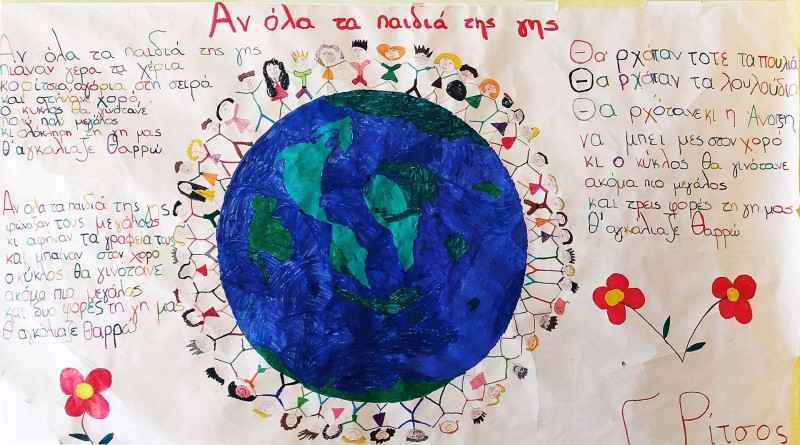 Αν όλα τα παιδιά της γης
Αν όλα τα παιδιά της γης
πιαναν γερα τα χέρια
κορίτσια, αγόρια στη σειρά
και στήνανε χορό
ο κυκλος θα γινότανε
πολύ πολύ μεγάλος
κι ολόκληρη τη γη μας
θ'αγκάλιαζε θαρρώ
Αν ολα τα παιδιά της γης
φώναζαν τους μεγάλους
κι αφηναν τα γραφεία τους
και μπαίναν στον χορό
ο κύκλος θα γινότανε
ακόμα πιο μεγάλος
και δυο φορές τη γη μας
θ'αγκάλιαζε θαρρώ
Θα ρχόταν τοτε τα πουλιά
Θα ρχόταν τα λουλούδια
Θα ρχότανε κι η Άνοιξη
να μπει μες στον χορό
κι ο κύκλος θα γινότανε
ακόμα πιο μεγάλος
και τρεις φορές τη γη μας
θ'αγκάλιαζε θαρρώ
Γ Ρίτσος